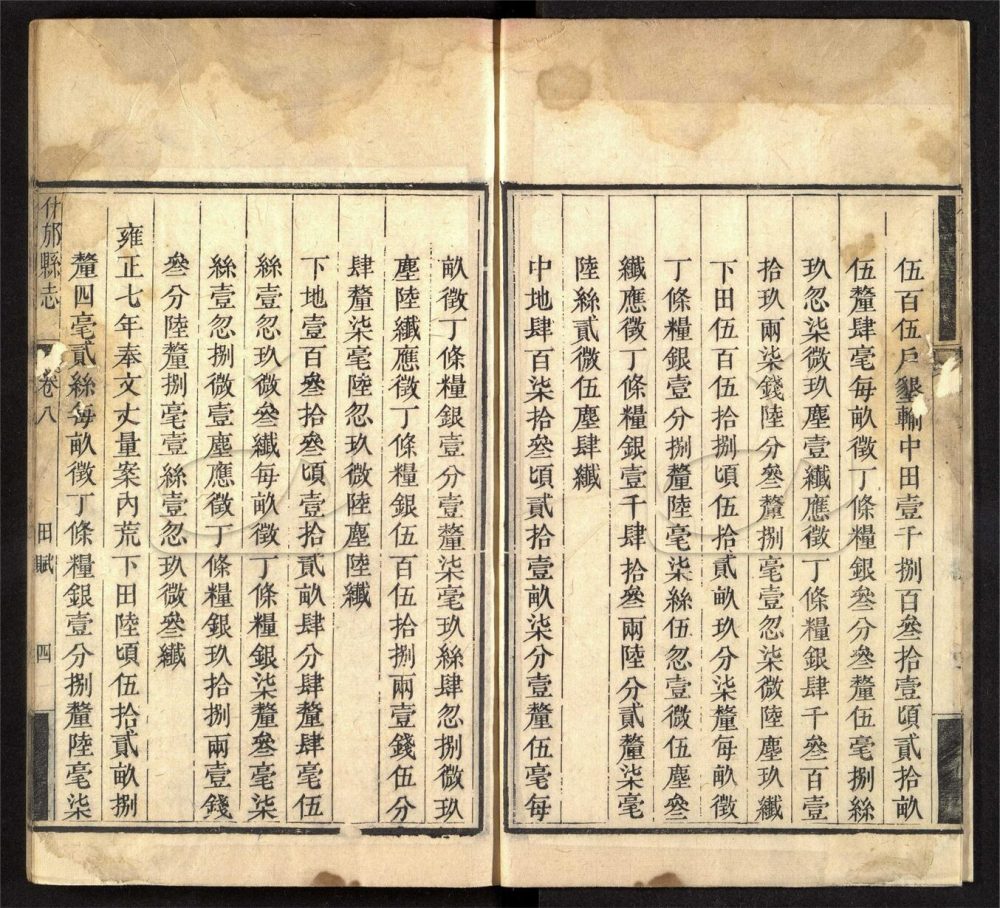 伍百伍戶墾輸中田壹千捌百叄拾壹頃貳拾畝
伍釐肆毫每畝徵丁條糧銀叄分叄釐伍毫捌絲
玖忽柒微玖塵壹纖應徵丁條糧銀肆千叄百壹
拾玖兩柒錢陸分叄釐捌毫壹忽柒微陸塵玖纖
下田伍百伍拾捌頃伍拾貳畝玖分柒釐每畝徵
丁條糧銀壹分捌釐陸毫柒絲伍忽壹微伍塵叄
纖應徵丁條糧銀壹千肆拾叄兩陸分貳釐柒毫
陸絲貳微伍塵肆纖
中地肆百柒拾叄頃貳拾壹畝柒分壹釐伍毫每
畝徵丁條糧銀壹分壹釐柒毫玖絲肆忽捌微玖
塵陸纖應徵丁條糧銀伍百伍拾捌兩壹錢伍分
肆釐柒毫陸忽玖微陸塵陸纖
下地壹百叄拾叄頃壹拾貳畝肆分肆釐肆毫伍
絲壹忽玖微叄纖每畝徵丁條糧銀柒釐叄毫柒
絲壹忽捌微壹塵應徵丁條糧銀玖拾捌兩壹錢
叄分陸釐捌毫壹絲壹忽玖微叄纖
雍正七年奉文丈量案內荒下田陸頃伍拾貳畝捌
釐四毫貳絲每畝徵丁條糧銀壹分捌釐陸毫柒
什邡縣志 卷八 田賦 四